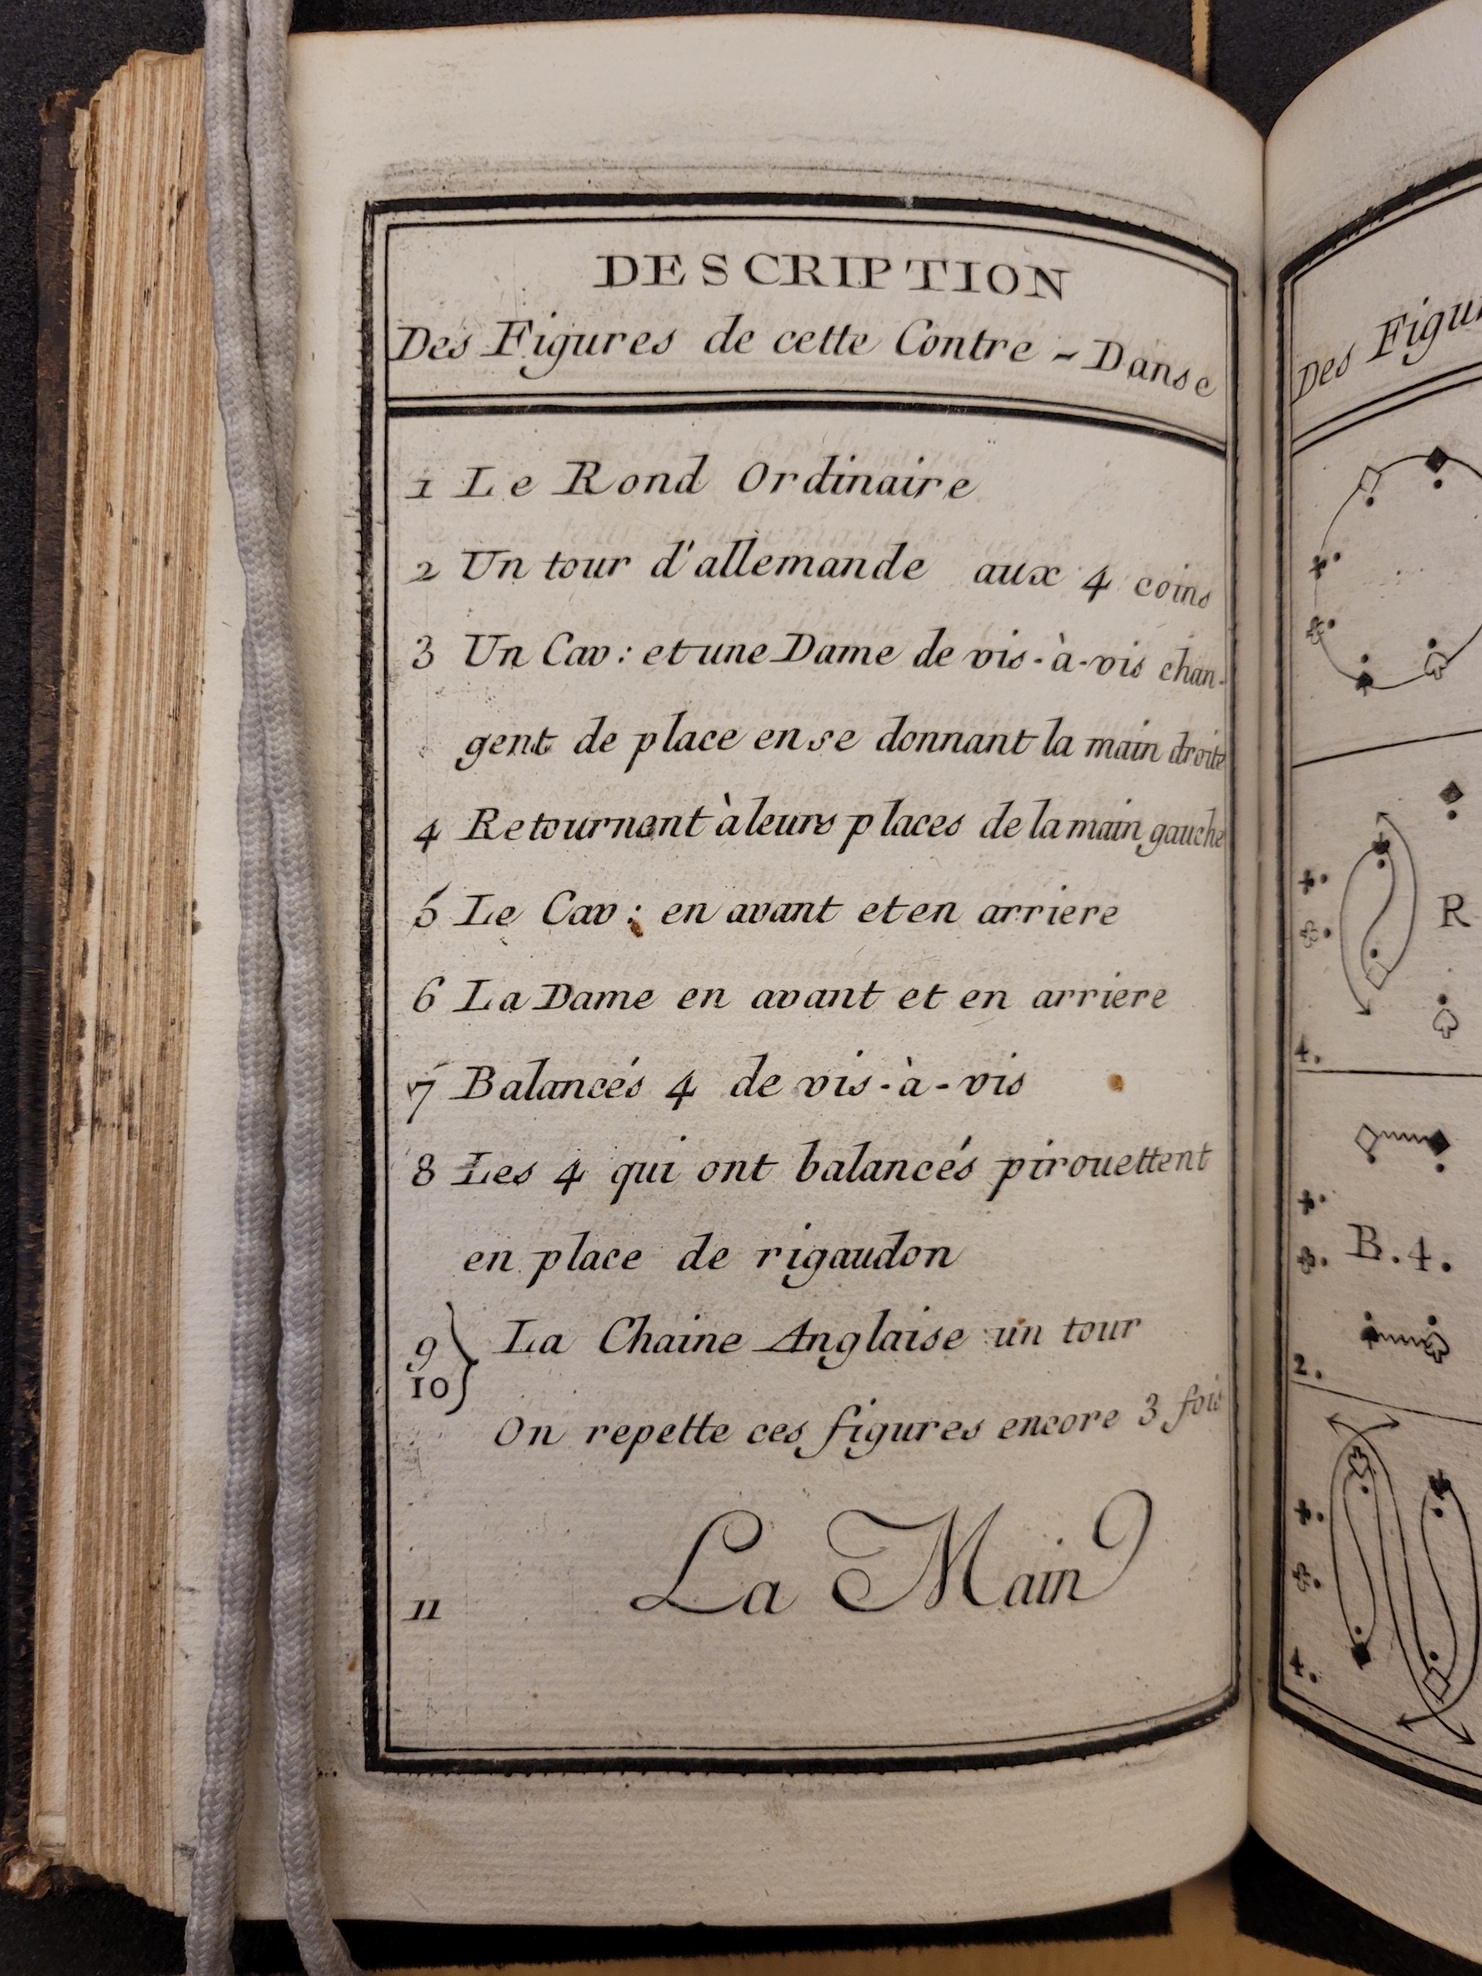 DESCRIPTION
Des Figures de cette Contre-Danse
1 Le Rond Ordinaire
2 Un tour d'allemande aux 4 coins
3 Un Cav: et une Dame de vis-à-vis chan-
gent de place en se donnant la main droite
4 Retournant à leurs places de la main gauche
5 Le Cav: en avant et en arriere
6 La Dame en avant et en arriere
7 Balancés 4 de vis-à-vis
8 Les 4 qui ont balancés pirouettent
en place de rigaudon
9 } La Chaine Anglaise un tour
10
On repette ces figures encore 3 fois
11 La Main
Des
R
4.
B.4.
2.
4.